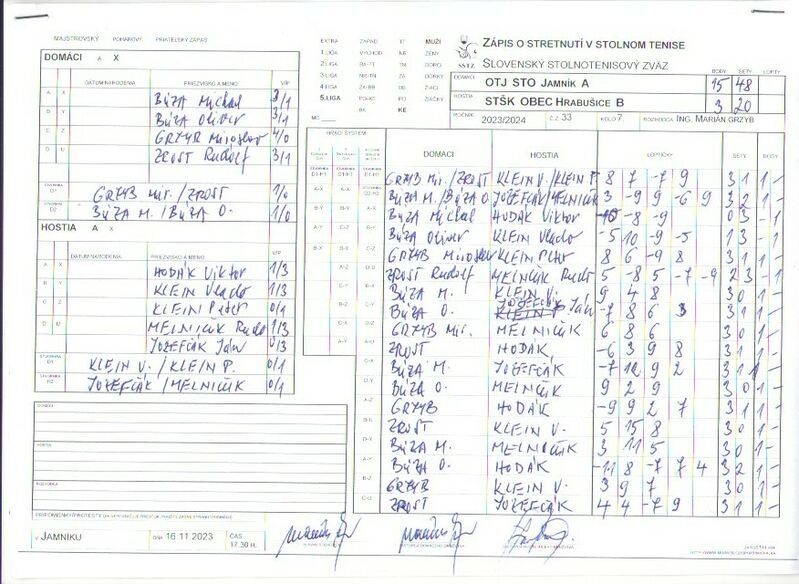 MAJSTROVSKÝ POHÁROVÝ PRIATEĽSKÝ ZÁPAS
DOMÁCI A X
DÁTUM NARODENIA PRIEZVISKO A MENO V/P
A X BÚZA Michal 3/1
D Y BÚZA Oliver 3/1
C Z GRZYB Miroslav 4/0
D U ZROST Rudolf 3/1
GRZYB Mir. / ZROST 1/0
D2 BÚZA M. / BÚZA O. 1/0
HOSTIA A X
DÁTUM NARODENIA PRIEZVISKO A MENO V/P
A X HODÁK Viktor 1/3
KLEIN Vlado 1/3
C Z KLEIN Peter 0/1
D U MELNIČÁK Rudo 1/3
JOZEFČÁK Ján 0/3
KLEIN V. / KLEIN P. 0/1
JOZEFČÁK / MELNIČÁK 0/1
DOMÁCI
HOSTIA
ROZHODCA
V JAMNÍKU DŇA 16 11 2023 ČAS 17.30 H.
EXTRA ZÁPAD TT MUŽI
1.LIGA VÝCHOD NR ŽENY
2.LIGA BA-TT TN DORO
3.LIGA NR-TN ZA
4.LIGA ZA-BB BB ŽIACI
5.LIGA KE-PO PO ŽIAČKY
BA KE
SSTZ
ZÁPIS O STRETNUTÍ V STOLNOM TENISE
SLOVENSKÝ STOLNOTENISOVÝ ZVÄZ
BODY SETY LOPTY
DOMÁCI OTJ STO JAMNÍK A 15 48
HOSTIA STŠK OBEC HRABUŠICE B 3 20
ROČNÍK 2023/2024 Č.Z 33 KOLO 7. ROZHODCA ING. MARIÁN GRZYB
HRACÍ SYSTÉM DOMÁCI HOSTIA LOPTIČKY SETY BODY
GRZYB Mir./ZROST KLEIN V./KLEIN P. 8 7 -7 9 3 1 1 -
BÚZA M./BÚZA O. JOZEFČÁK/MELNIČÁK 3 -9 9 -6 9 3 2 1 -
BÚZA Michal HODÁK Viktor -10 -8 -9 0 3 - 1
BÚZA Oliver KLEIN Vlado -5 10 -9 -5 1 3 - 1
GRZYB Miroslav KLEIN Peter 8 6 -9 8 3 1 1 -
ZROST Rudolf MELNIČÁK Rudo 5 -8 5 -7 -9 2 3 - 1
BÚZA M. KLEIN V. 9 4 8 3 0 1 -
BÚZA O. JOZEFČÁK Ján -7 8 6 3 3 1 1 -
GRZYB Mir. MELNIČÁK 6 8 6 3 0 1 -
ZROST HODÁK -6 3 9 8 3 1 1 -
BÚZA M. JOZEFČÁK -7 12 9 2 3 1 1 -
BÚZA O. MELNIČÁK 9 2 9 3 0 1 -
GRZYB HODÁK -9 9 2 7 3 1 1 -
ZROST KLEIN V. 5 15 8 3 0 1 -
BÚZA M. MELNIČÁK 3 11 5 3 0 1 -
BÚZA O. HODÁK -11 8 -7 7 4 3 2 1 -
GRZYB KLEIN V. 3 9 7 3 0 1 -
ZROST JOZEFČÁK 4 4 -7 9 3 1 1 -